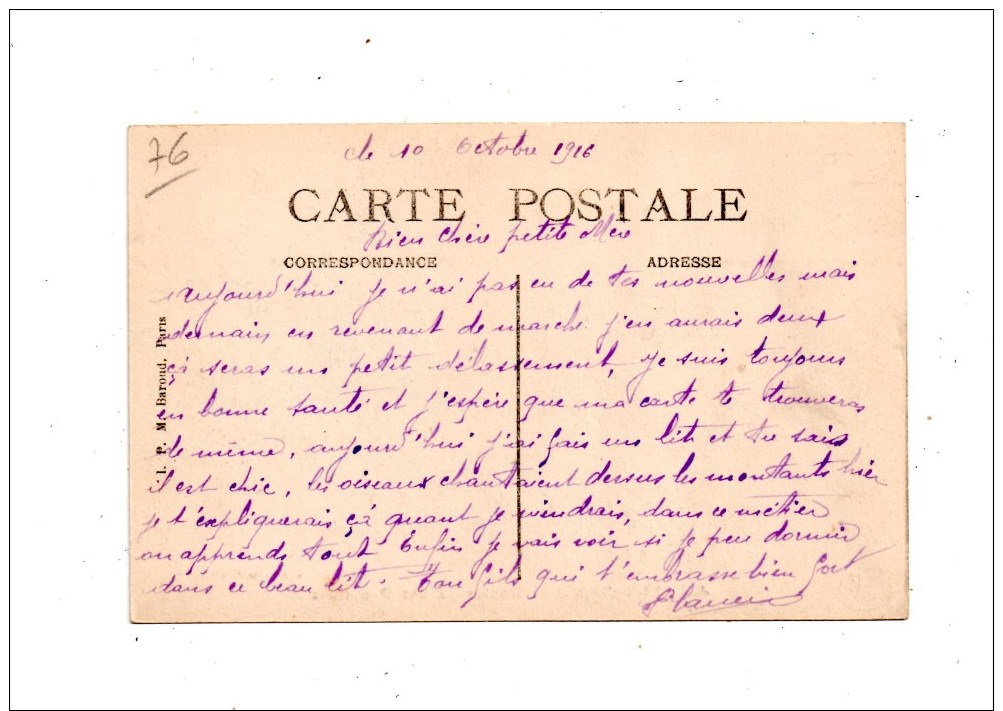 76
le 10 Octobre 1916
CARTE POSTALE
Bien chère petite Mère
CORRESPONDANCE
ADRESSE
aujourd'hui je n'ai pas eu de tes nouvelles mais
demain en revenant de marche j'en aurais deux
çà seras un petit délassement, je suis toujours
en bonne santé et j'espère que ma carte te trouveras
de même, aujourd'hui j'ai fais un lit et tu sais
il est chic, les oiseaux chantaient dessus les montants hier
je t'expliquerais çà quant je viendrais, dans ce métier
on apprends tout Enfin je vais voir si je peu dormir
dans ce beau lit. Ton fils qui t'embrasse bien fort
I. P. M. Baroud, Paris